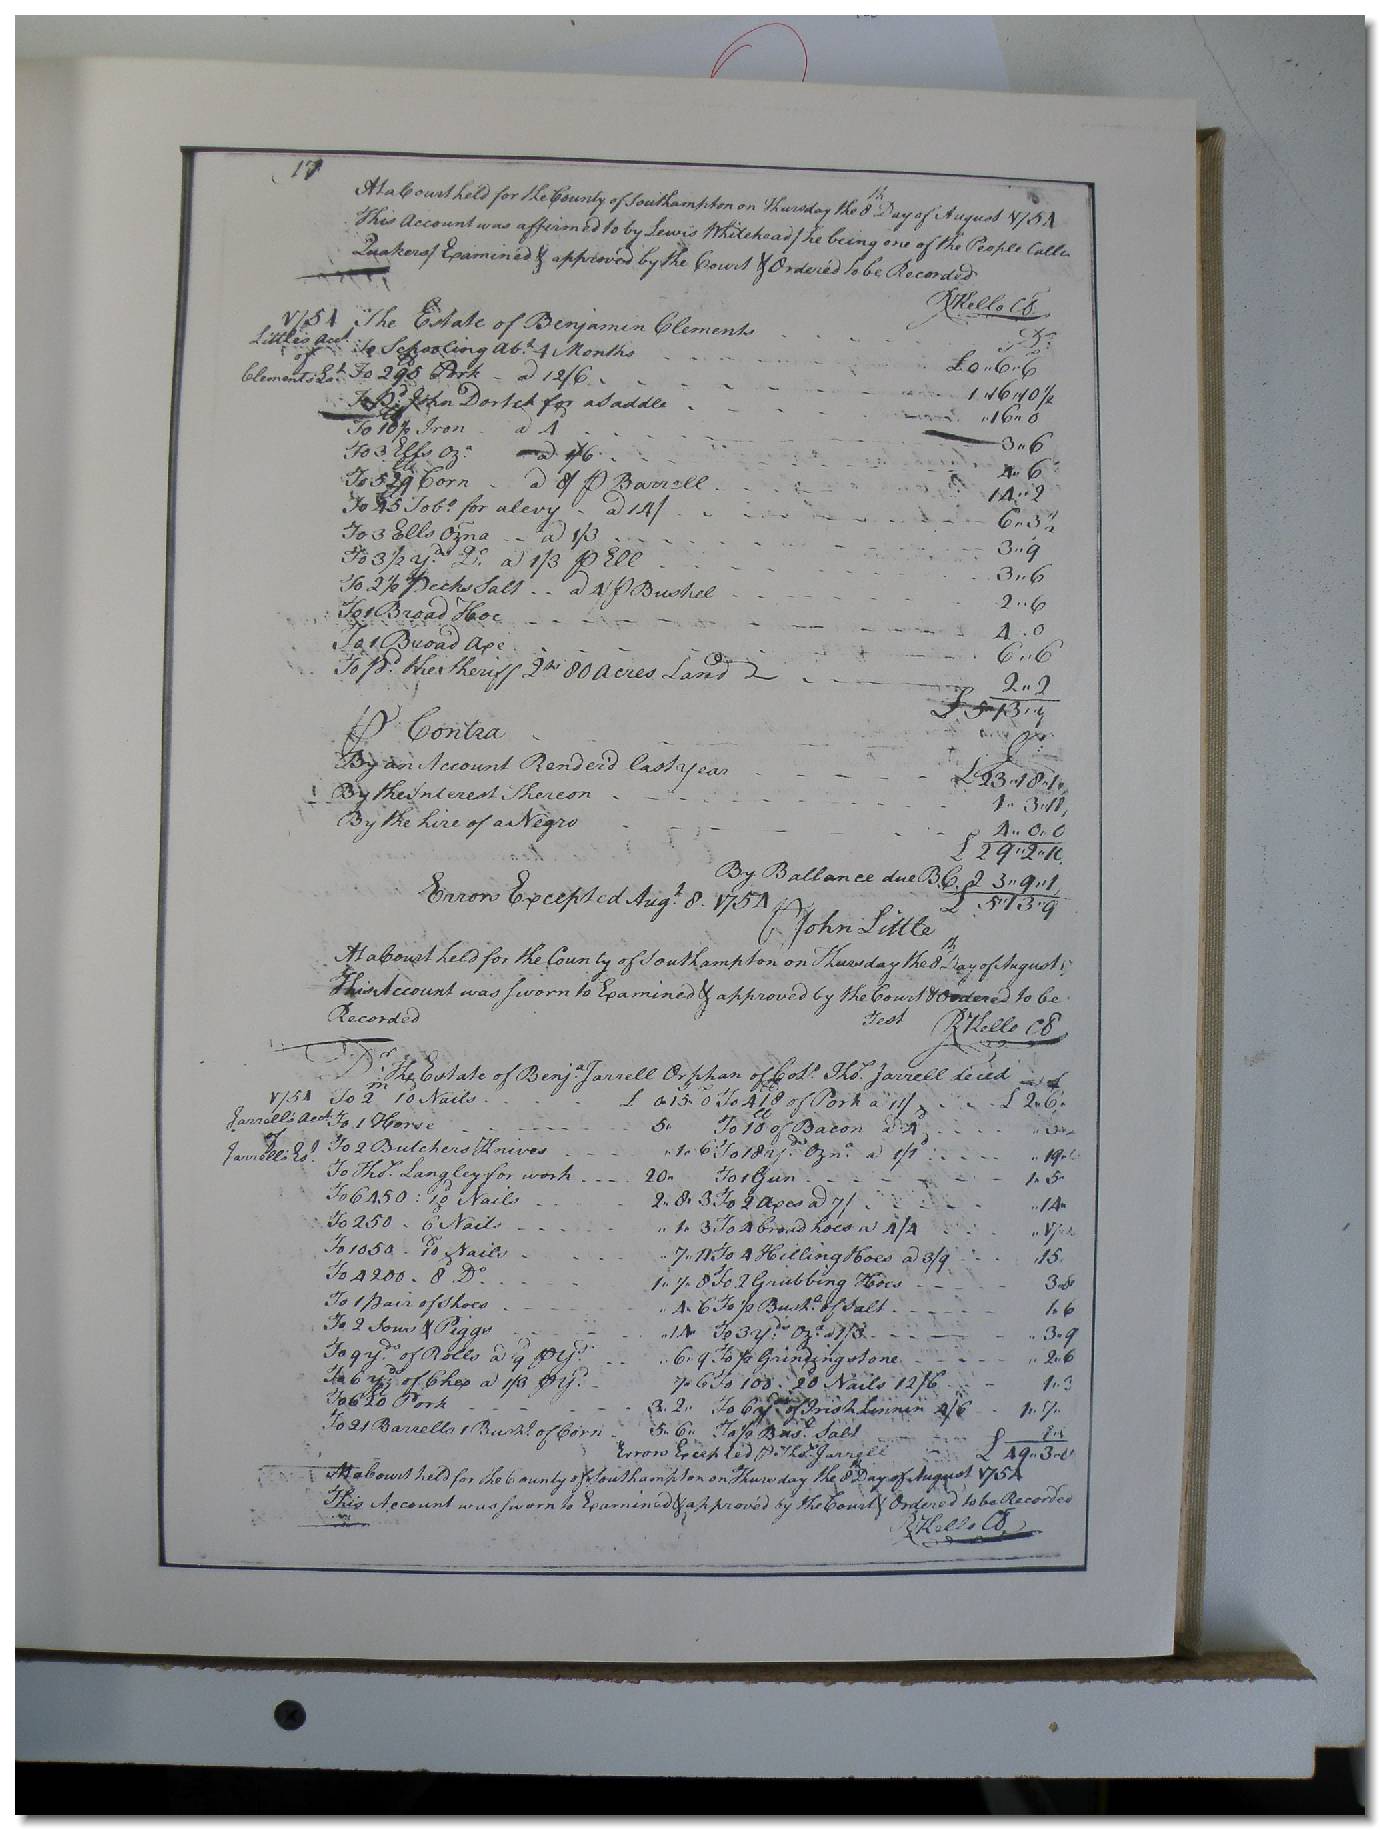 17
At a Court held for the County of Southampton on Thursday the 8th Day of August 1754
This Account was affirmed to by Lewis Whitehead /he being one of the People Calle
Quakers/ Examined & approved by the Court & Ordered to be Recorded
R Kello CC
1754 The Estate of Benjamin Clements Dr
Littles Acct. To Schooling Abt. 4 Months £0"6"6
of
Clements Est. To 295 lb Pork a 12/6 1"16"10½
To pd. John Dortch for a Saddle "16"0
To 10½ lb Iron a 4d 3"6
To 3 Ells Ozn a 1/6 4"6
To 529 Corn a 8/ p Barrell 14"2
To 45 Tobo. for a levy a 14/ 6"3½
To 3 Ells Ozna a 1/3 3"9
To 3½ yds. Do. a 1/3 p Ell 3"6
To 2½ Pecks Salt a 4/ p Bushel 2"6
To 1 Broad Hoe 4"0
To 1 Broad Axe 6"6
To pd. the Sheriff 80 Acres Land 2"2
£ 5"13"9
p Contra Cr
By an Account Renderd last year £23"18"1
By the Interest Thereon 1"3"11
By the hire of a Negro 4"0"0
£ 29"2"
By Ballance due BC. 23"9"1
£ 5"13"9
Errors Excepted Augt. 8. 1754
p John Little
At a Court held for the County of Southampton on Thursday the 8th Day of August
This Account was sworn to Examined & approved by the Court & Ordered to be
Recorded Test R Kello CC
Dr. The Estate of Benja. Jarrell Orphan of Colo. Tho. Jarrell decd £
1754 To 2m 10d Nails £ 0"15"0 To 418 lb of Pork a 11/ £ 2"6"
Jarrells Acct. To 1 Horse 5" To 10 lb of Bacon a 4d "3"
of
Jarrells Est. To 2 Butchers Knives "1"6 To 18 yds. Ozn. a 1/1 "19"
To Tho. Langley for work 20" To 1 Gun 1"5"
To 6450 : 10d Nails 2"8"3 To 2 Axes a 7/ "14"
To 250 - 6d Nails "1"3 To 4 broad hoes a 4/4 "17"
To 1050 - 10d Nails "7"11 To 4 Hilling Hoes a 3/9 "15
To 4200 - 8d Do 1"7"8 To 2 Grubbing Hoes 3"8
To 1 pair of Shoes "4"6 To ½ Bushl. of Salt 1"6
To 2 Sows & Piggs "14" To 3 yds. Ozn. a 1/3 "3"9
To 9 yds. of Rolls a 9d p yd. "6"9 To ½ Grindingstone "2"6
To 6 yds. of Chex a 1/3 p yd. 7"6 To 100 - 20d Nails 12/6 1"3
To 620 lb Pork 3"2" To 6 yds. of Irish Linnin 4/6 1"7"
To 21 Barrells 1 Bushl. of Corn 5"6" To ½ Bush. Salt
Errors Excepted p Tho. Jarrell £ 49"3"
At a Court held for the County of Southampton on Thursday the 8th Day of August 1754
This Account was sworn to Examined & approved by the Court & Ordered to be Recorded
R Kello CC